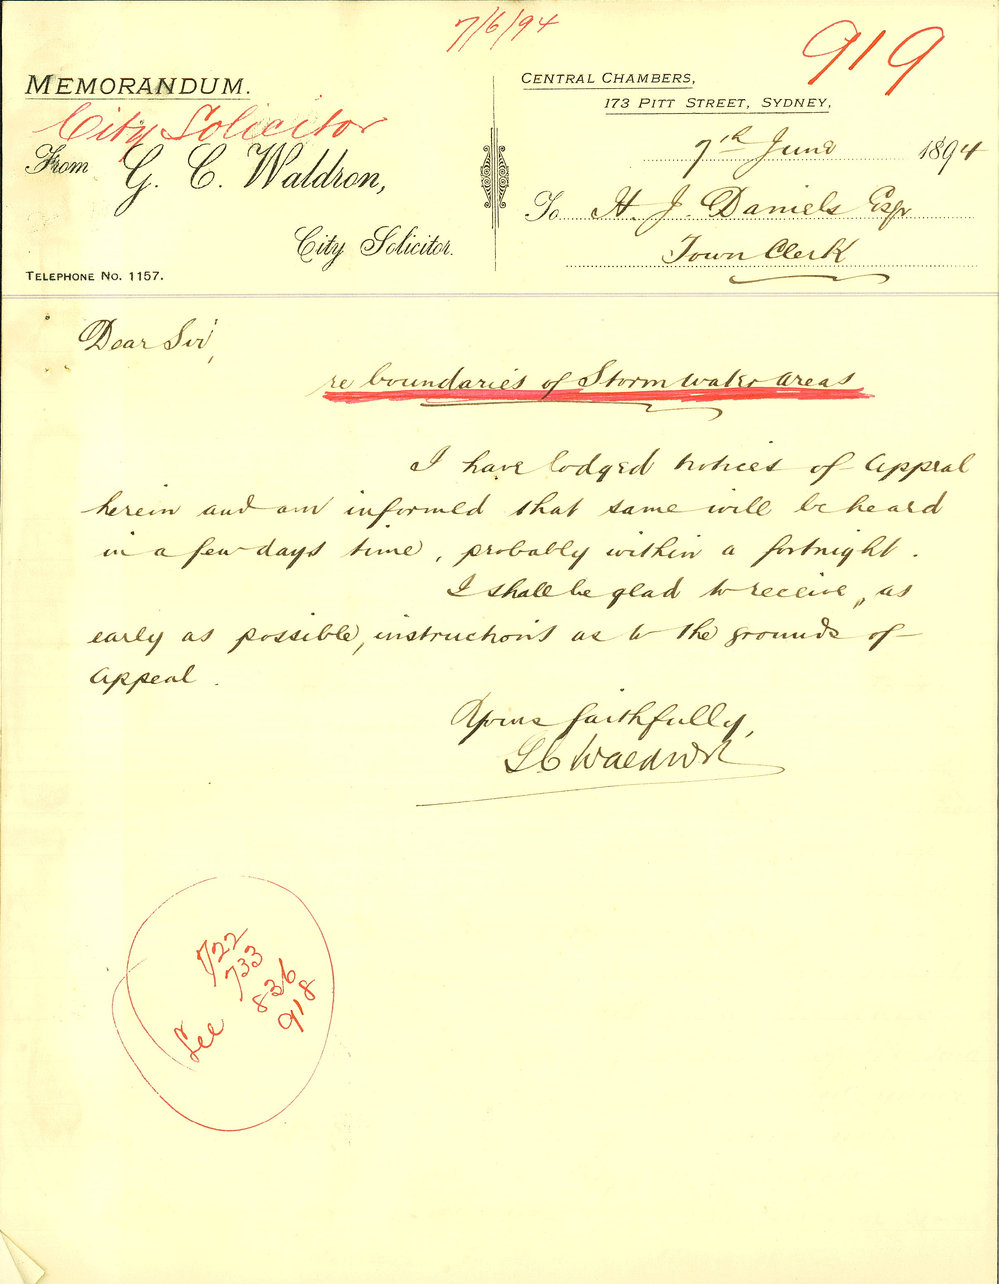 7/6/94
919
MEMORANDUM.
City Solicitor
From G. C. Waldron,
City Solicitor.
TELEPHONE No. 1157.
CENTRAL CHAMBERS,
173 PITT STREET, SYDNEY,
7th June 1894
To H. J. Daniels Esqr
Town Clerk
Dear Sir,
re boundaries of Storm water areas
I have lodged notices of Appeal
herein and am informed that same will be heard
in a few days time, probably within a fortnight.
I shall be glad to receive, as
early as possible, instructions as to the grounds of
Appeal.
Yours faithfully,
G C Waldron
See 722
733
836
918